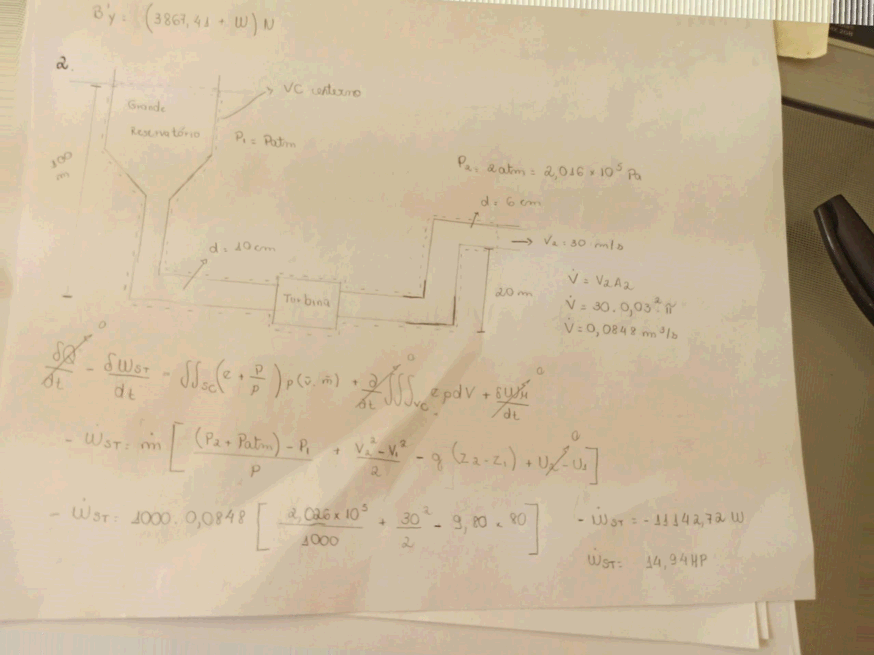 B'y = (3867,41 + W) N
2.
VC externo
Grande
Reservatório
P₁ = Patm
100
m
P₂ = 2 atm = 2,016 × 10⁵ Pa
d = 6 cm
d = 10cm
V₂ = 30 m/s
Turbina
20m
V̇ = V₂A₂
V̇ = 30 . 0,03² . π
V̇ = 0,0848 m³/s
δQ/dt - δW_ST/dt = ∬_SC (e + P/ρ) ρ(v̄.n̄) + ∂/∂t ∭_VC e ρ dV + δWμ/dt
0 0 0
- Ẇ_ST = ṁ [ (P₂ + Patm) - P₁ / ρ + V₂² - V₁² / 2 - g (Z₂ - Z₁) + U₂ - U₁ ]
0
- Ẇ_ST = 1000 . 0,0848 [ 2,026 × 10⁵ / 1000 + 30² / 2 - 9,80 × 80 ] - Ẇ_ST = -11142,72 W
Ẇ_ST = 14,94 HP